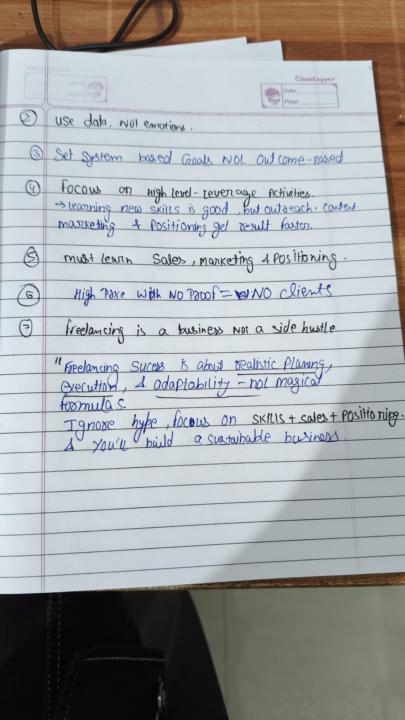 Classtopper
Date
Page
② use data, Not emotions.
③ Set System based Goals NOT Outcome-Based
④ Focous on High level-leverage Activities.
→ Learning new skills is good, but outreach. content
marketing & Positioning get result faster.
⑤ must learn Sales, marketing & Positioning.
⑥ High Price with No Proof = NO clients
⑦ freelancing is a business Not a side hustle
"Freelancing Sucess is about realistic Planing,
execution, & adaptability - not magical
formulas.
Ignore hype, focous on SKILLS + sales + Positioning.
& You'll build a sustainable business.